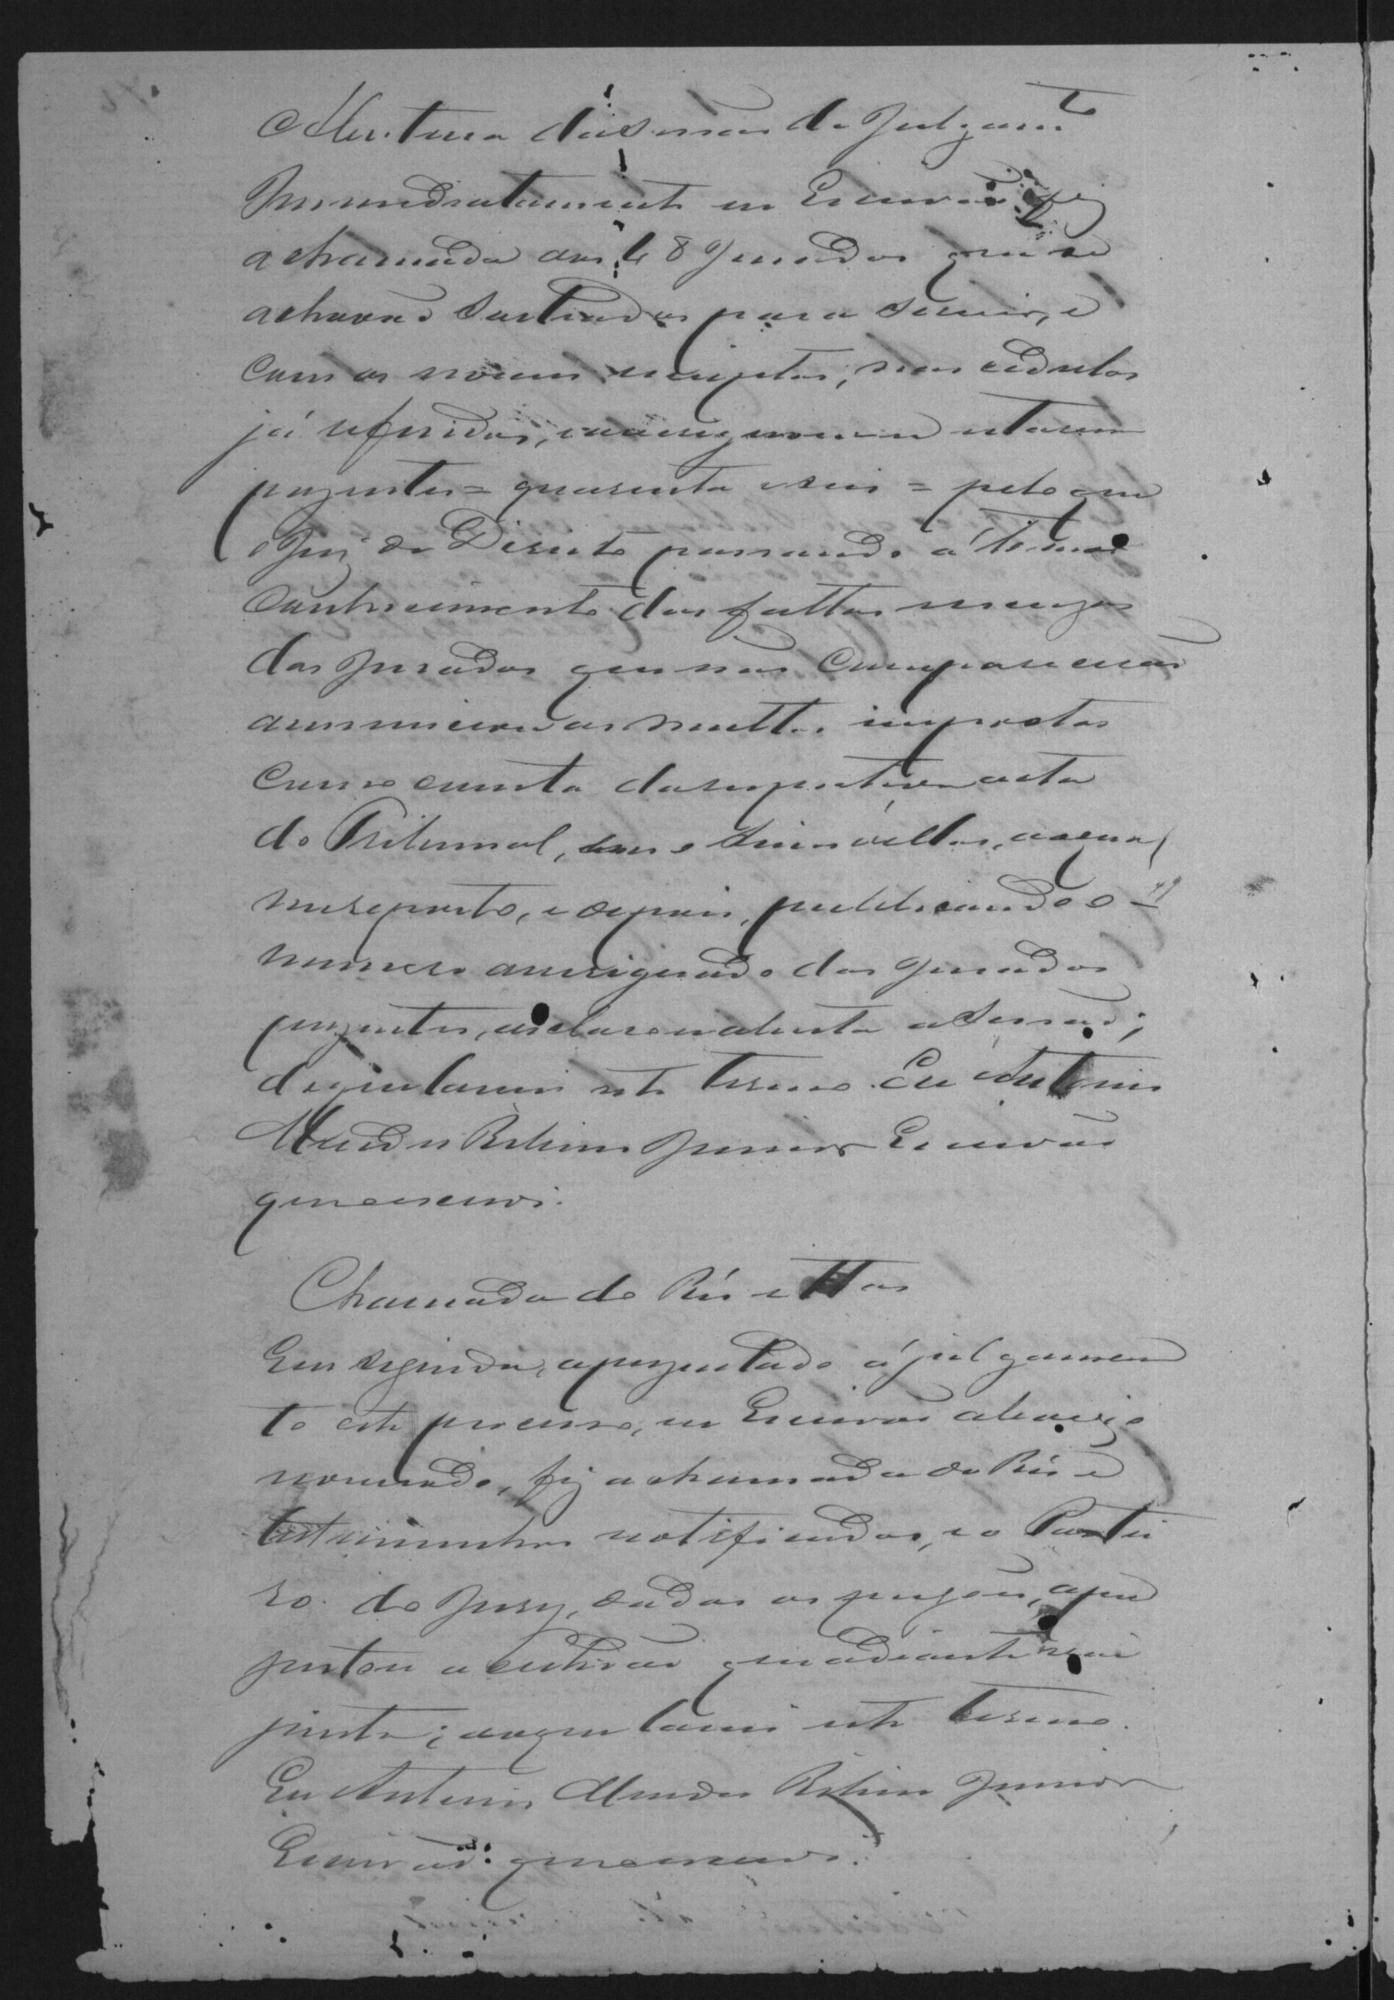 Abertura da Sessão de Julgam.to
Immediatamente eu Escrivão fiz
a chamada dos 48 Jurados que se
achavão Sorteados para servir, e
com os nomes escriptos, nas cedulas
já referidas, averiguando estarem
prezentes = quarenta e seis = pelo que
o Juiz de Direito passando a tomar
conhecimento das faltas e escuzas
dos Jurados que não comparecerão
annunciou as multas impostas
como consta da respectiva acta
do Tribunal,
e depois, publicando o
numero averiguado dos Jurados
prezentes, declarou aberta a Sessão;
de que lavrei este termo. Eu Antonio
Mendes Ribeiro Junior Escrivão
que escrevi.
Chamada do Réo e ttas
Em seguida, aprezentado á julgamen
to este processo, eu Escrivão abaixo
nomeado, fiz a chamada do Réo e
testemunhas notificadas, e o Portei
ro do Jury, dados os pregões, apre
zentou a certidão que adiante vai
junta; do que lavrei este termo.
Eu Antonio Mendes Ribeiro Junior
Escrivão que escrevi.